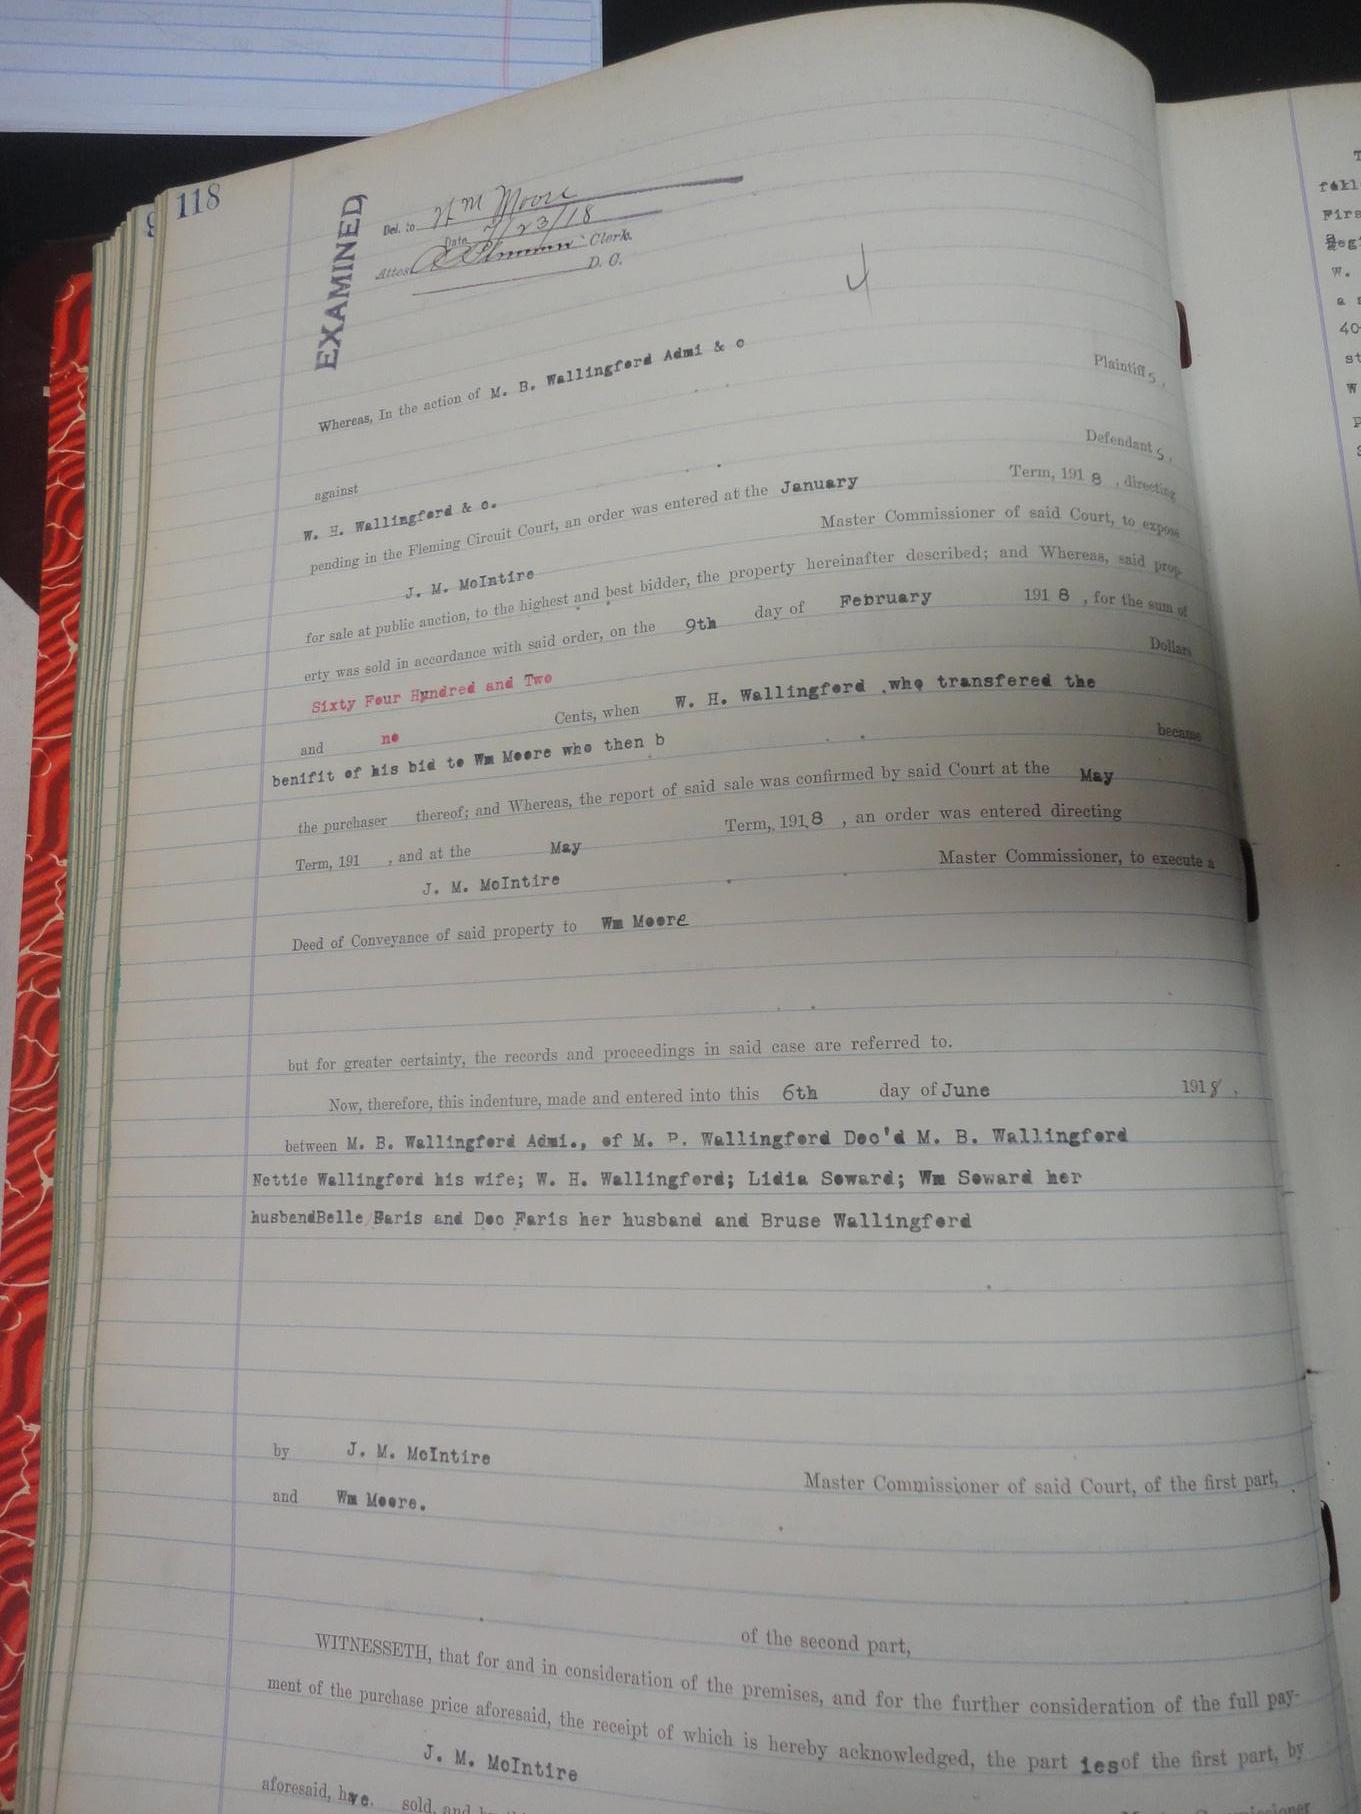 118
EXAMINED
Del. to Wm Moore
Date 7/23/18
Attest Clerk.
D. C.
4
Whereas, In the action of M. B. Wallingford Admi & c
Plaintiffs,
against
Defendants,
W. H. Wallingford & c.
pending in the Fleming Circuit Court, an order was entered at the January Term, 1918, directing
J. M. McIntire Master Commissioner of said Court, to expose
for sale at public auction, to the highest and best bidder, the property hereinafter described; and Whereas, said prop-
erty was sold in accordance with said order, on the 9th day of February 1918, for the sum of
Sixty Four Hundred and Two Dollars
and no Cents, when W. H. Wallingford ,who transfered the
benifit of his bid to Wm Moore who then b became
the purchaser thereof; and Whereas, the report of said sale was confirmed by said Court at the May
Term, 191 , and at the May Term, 1918 , an order was entered directing
J. M. McIntire Master Commissioner, to execute a
Deed of Conveyance of said property to Wm Moore
but for greater certainty, the records and proceedings in said case are referred to.
Now, therefore, this indenture, made and entered into this 6th day of June 1918.
between M. B. Wallingford Admi., of M. P. Wallingford Dec'd M. B. Wallingford
Nettie Wallingford his wife; W. H. Wallingford; Lidia Soward; Wm Soward her
husbandBelle Faris and Doc Faris her husband and Bruse Wallingford
by J. M. McIntire Master Commissioner of said Court, of the first part,
and Wm Moore.
of the second part,
WITNESSETH, that for and in consideration of the premises, and for the further consideration of the full pay-
ment of the purchase price aforesaid, the receipt of which is hereby acknowledged, the part iesof the first part, by
J. M. McIntire
aforesaid, have. sold, and